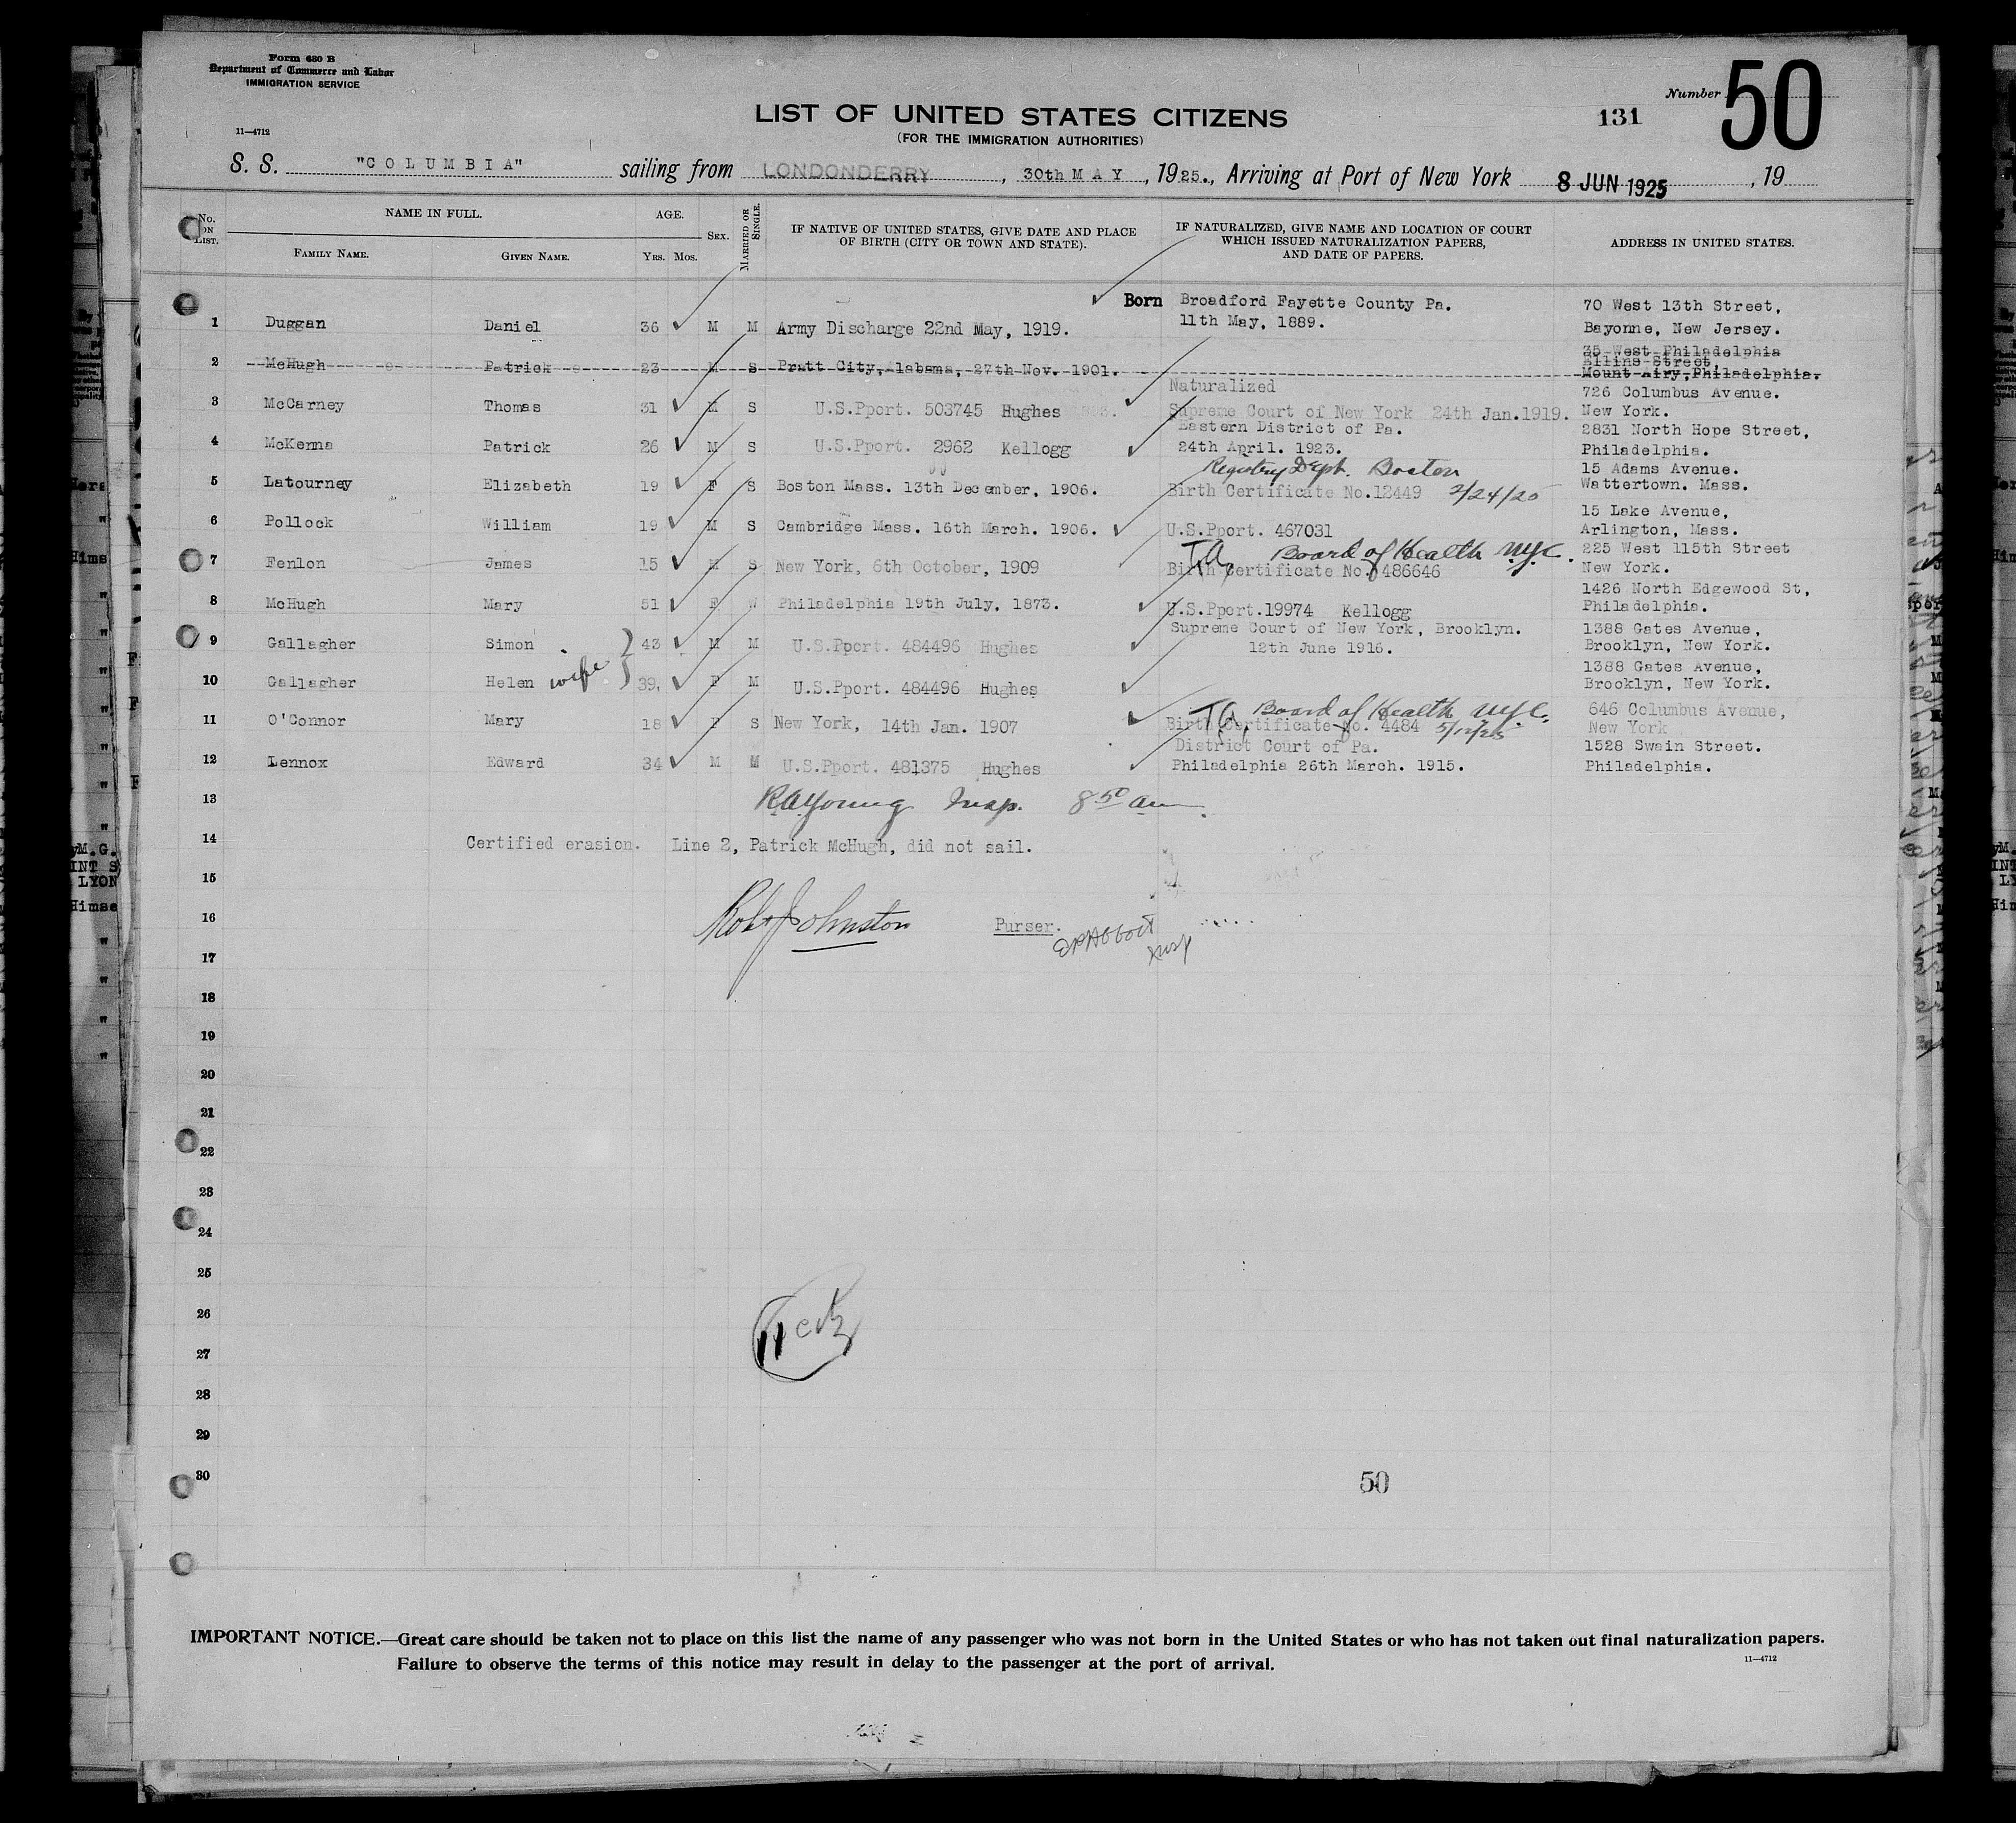 Form 630 B
Department of Commerce and Labor
IMMIGRATION SERVICE
11—4712
Number 50
131
LIST OF UNITED STATES CITIZENS
(FOR THE IMMIGRATION AUTHORITIES)
S. S. "COLUMBIA" sailing from LONDONDERRY, 30th MAY, 1925., Arriving at Port of New York 8 JUN 1925, 19
No. ON LIST. NAME IN FULL. FAMILY NAME. GIVEN NAME. AGE. YRS. MOS. SEX. MARRIED OR SINGLE. IF NATIVE OF UNITED STATES, GIVE DATE AND PLACE OF BIRTH (CITY OR TOWN AND STATE). IF NATURALIZED, GIVE NAME AND LOCATION OF COURT WHICH ISSUED NATURALIZATION PAPERS, AND DATE OF PAPERS. ADDRESS IN UNITED STATES.
Born Broadford Fayette County Pa. 70 West 13th Street,
1 Duggan Daniel 36 M M Army Discharge 22nd May, 1919. 11th May, 1889. Bayonne, New Jersey.
35 West Philadelphia
Elline Street,
2 McHugh Patrick 23 M S Pratt City, Alabama, 27th Nov. 1901. Mount Airy, Philadelphia.
Naturalized 726 Columbus Avenue.
3 McCarney Thomas 31 M S U.S.Pport. 503745 Hughes Supreme Court of New York 24th Jan.1919. New York.
Eastern District of Pa. 2831 North Hope Street,
4 McKenna Patrick 26 M S U.S.Pport. 2962 Kellogg 24th April. 1923. Philadelphia.
Registry Dept. Boston 15 Adams Avenue.
5 Latourney Elizabeth 19 F S Boston Mass. 13th December, 1906. Birth Certificate No.12449 2/24/25 Wattertown. Mass.
15 Lake Avenue,
6 Pollock William 19 M S Cambridge Mass. 16th March. 1906. U.S.Pport. 467031 Arlington, Mass.
Board of Health N.Y.C. 225 West 115th Street
7 Fenlon James 15 M S New York, 6th October, 1909 Birth Certificate No. 486646 New York.
1426 North Edgewood St,
8 McHugh Mary 51 F W Philadelphia 19th July, 1873. U.S.Pport.19974 Kellogg Philadelphia.
Supreme Court of New York, Brooklyn. 1388 Gates Avenue,
9 Gallagher Simon 43 M M U.S.Pport. 484496 Hughes 12th June 1916. Brooklyn, New York.
1388 Gates Avenue,
10 Gallagher Helen wife 39. F M U.S.Pport. 484496 Hughes Brooklyn, New York.
Board of Health N.Y.C. 646 Columbus Avenue,
11 O'Connor Mary 18 F S New York, 14th Jan. 1907 Birth Certificate No. 4484 New York
District Court of Pa. 1528 Swain Street.
12 Lennox Edward 34 M M U.S.Pport. 481375 Hughes Philadelphia 26th March. 1915. Philadelphia.
13 RA Young Insp. 8 50 am
14 Certified erasion. Line 2, Patrick McHugh, did not sail.
15
16 Robt Johnston Purser.
EPAbbott
Insp
17
18
19
20
21
22
23
24
25
26
27
28
29
30
50
IMPORTANT NOTICE.—Great care should be taken not to place on this list the name of any passenger who was not born in the United States or who has not taken out final naturalization papers.
Failure to observe the terms of this notice may result in delay to the passenger at the port of arrival.
11—4712